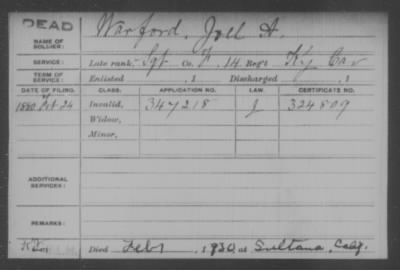 DEAD
NAME OF SOLDIER: Warford, Joel A.
SERVICE: Late rank, Sgt Co. F, 14 Reg't Ky Cav
TERM OF SERVICE: Enlisted , 1 Discharged , 1
DATE OF FILING. CLASS. APPLICATION NO. LAW. CERTIFICATE NO.
1880 Feb 24 Invalid, 347218 J 324809
Widow,
Minor,
ADDITIONAL SERVICES:
REMARKS:
Died Feb 1, 1930, at Sultana, Calif.